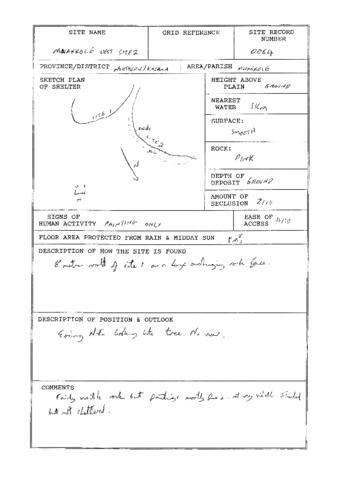 SITE NAME
GRID REFERENCE
SITE RECORD
NUMBER
WEST SITE 2
0064
PROVINCE/DISTRICT NORTHERN/KASAMA
AREA/PARISH
SKETCH PLAN
OF SHELTER
SITE 1
SITE 2
N
HEIGHT ABOVE
PLAIN GROUND
NEAREST
WATER 1Km
SURFACE:
Smooth
ROCK:
PINK
DEPTH OF
DEPOSIT GROUND
AMOUNT OF
SECLUSION 2/10
SIGNS OF
HUMAN ACTIVITY PAINTING ONLY
EASE OF
ACCESS 10/10
FLOOR AREA PROTECTED FROM RAIN & MIDDAY SUN
DESCRIPTION OF HOW THE SITE IS FOUND
8 metres north of site 1 on a large overhanging rock face.
DESCRIPTION OF POSITION & OUTLOOK
Facing looking into trees. No view.
COMMENTS
Fairly rock but paintings mostly
but not sheltered.